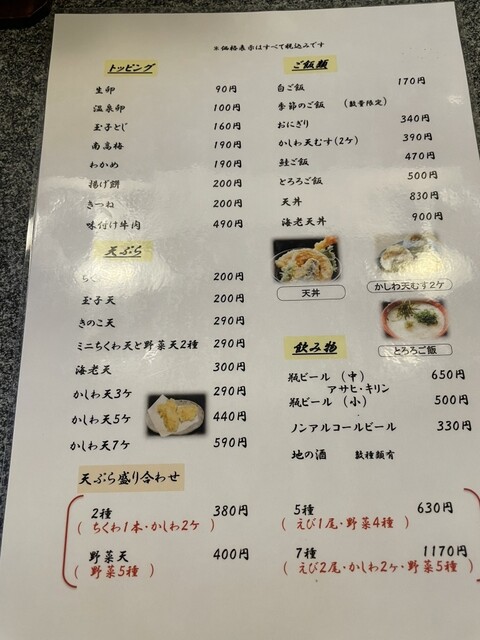 ※価格表示はすべて税込みです
トッピング
生卵 90円
温泉卵 100円
玉子とじ 160円
南高梅 190円
わかめ 190円
揚げ餅 200円
きつね 200円
味付け牛肉 490円
天ぷら
200円
玉子天 200円
きのこ天 290円
ミニちくわ天と野菜天2種 290円
海老天 300円
かしわ天3ケ 290円
かしわ天5ケ 440円
かしわ天7ケ 590円
ご飯類
白ご飯 170円
季節のご飯 (数量限定)
おにぎり 340円
かしわ天むす(2ケ) 390円
鮭ご飯 470円
とろろご飯 500円
天丼 830円
海老天丼 900円
天丼
かしわ天むす2ケ
とろろご飯
飲み物
瓶ビール (中) 650円
アサヒ・キリン
瓶ビール (小) 500円
ノンアルコールビール 330円
地の酒 数種類有
天ぷら盛り合わせ
2種 380円
( ちくわ1本・かしわ2ケ )
野菜天 400円
( 野菜5種 )
5種 630円
( えび1尾・野菜4種 )
7種 1170円
( えび2尾・かしわ2ケ・野菜5種 )